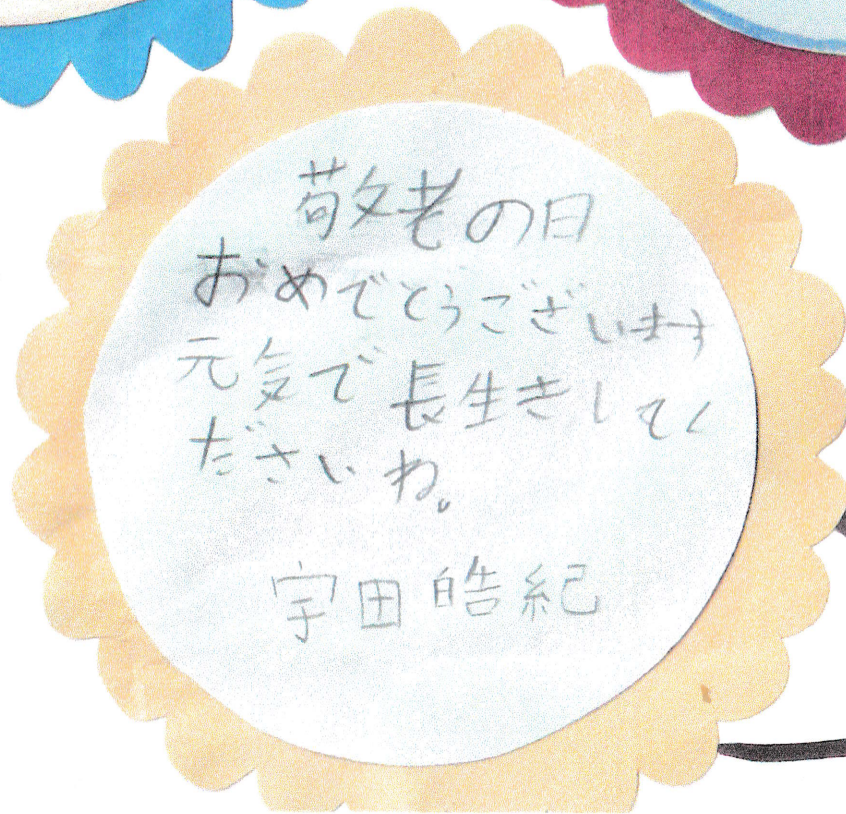 敬老の日
おめでとうございます
元気で長生きしてく
ださいね。
宇田皓紀